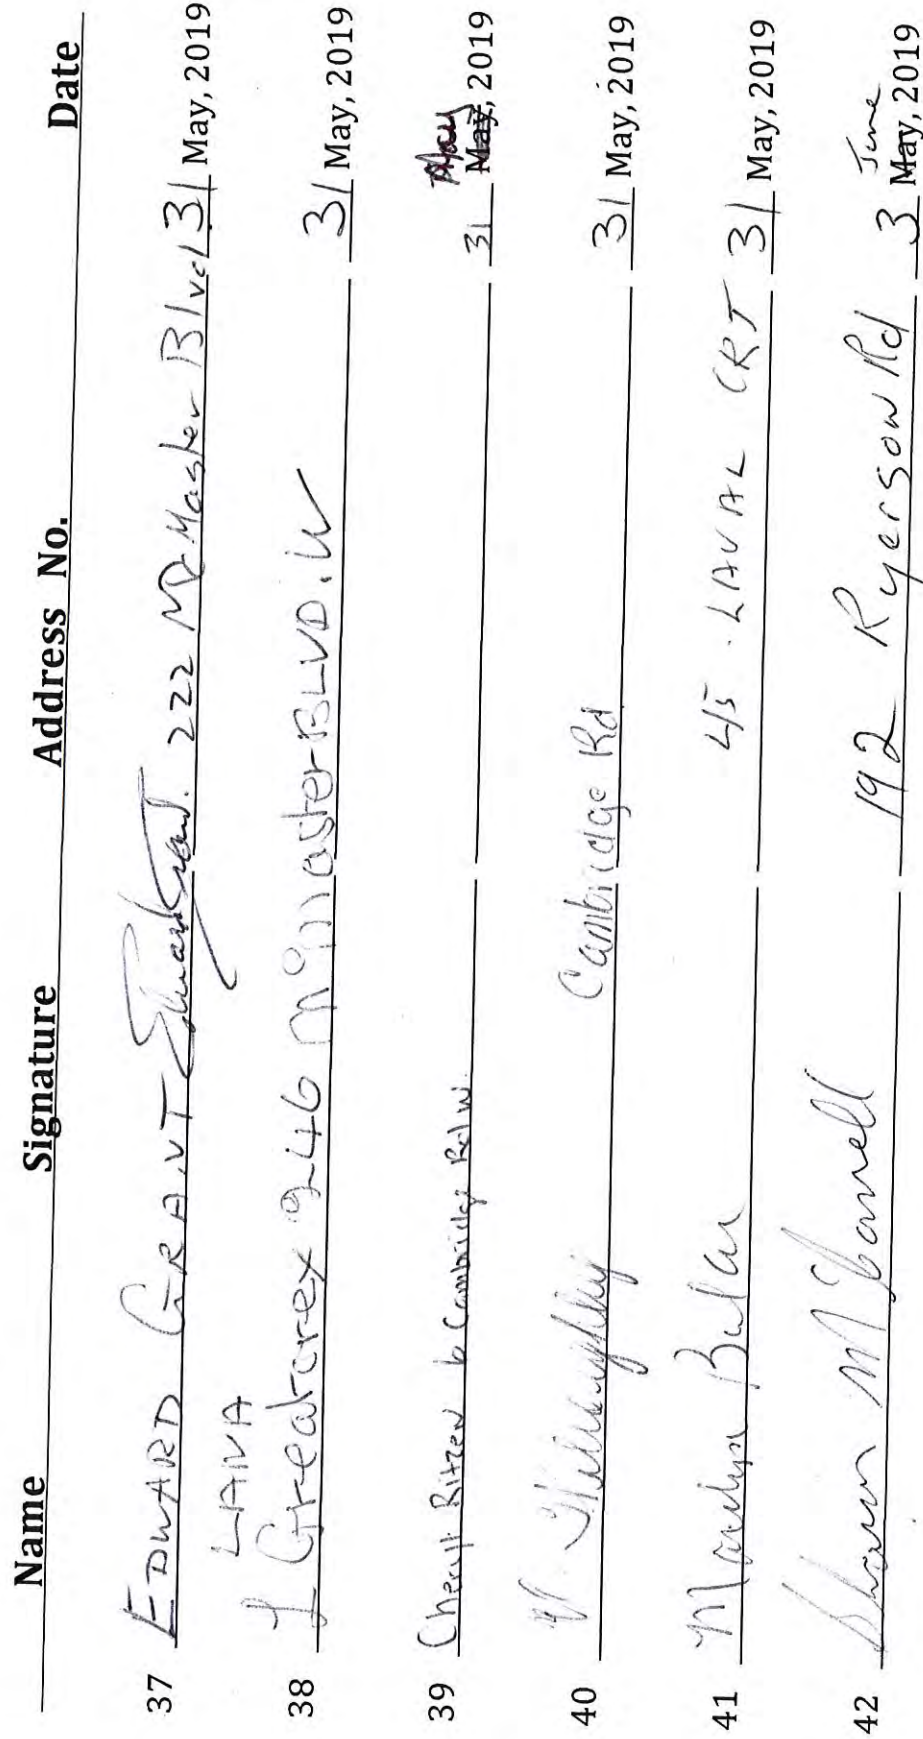 Name Signature Address No. Date
37 EDWARD GRANT 222 McMaster Blvd 31 May, 2019
LANA
38 L Greatorex 246 McMaster BLVD. W 31 May, 2019
May
39 Cheryl Ritzen 6 Cambridge Rd W 31 May, 2019
40 Cambridge Rd 31 May, 2019
41 Marilyn 45 LAVAL CRT 31 May, 2019
June
42 Sharon 192 Ryerson Rd 3 May, 2019